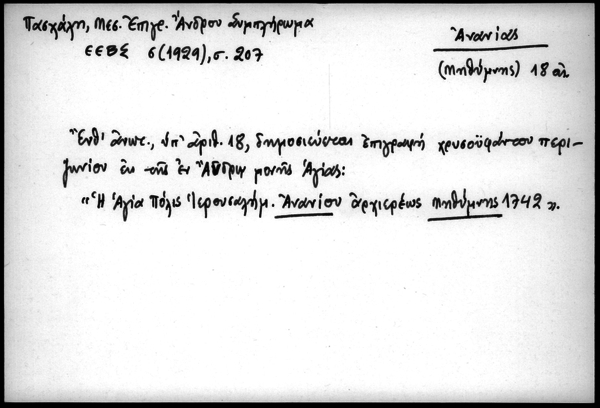 Πασχάλη, Μεσ. Ἐπιγρ. Ἄνδρου συμπλήρωμα
ΕΕΒΣ 6 (1929), σ. 207
Ἀνανίας
(Μηθύμνης) 18 αἰ.
Ἔνθ' ἀνωτ., ὑπ' ἀριθ. 18, δημοσιεύεται ἐπιγραφή χρυσοϋφάντου περι-
ζωνίου ἐκ τῆς ἐν Ἄνδρῳ μονῆς Ἁγίας:
«Ἡ Ἁγία Πόλις Ἱερουσαλήμ. Ἀνανίου ἀρχιερέως Μηθύμνης 1742».